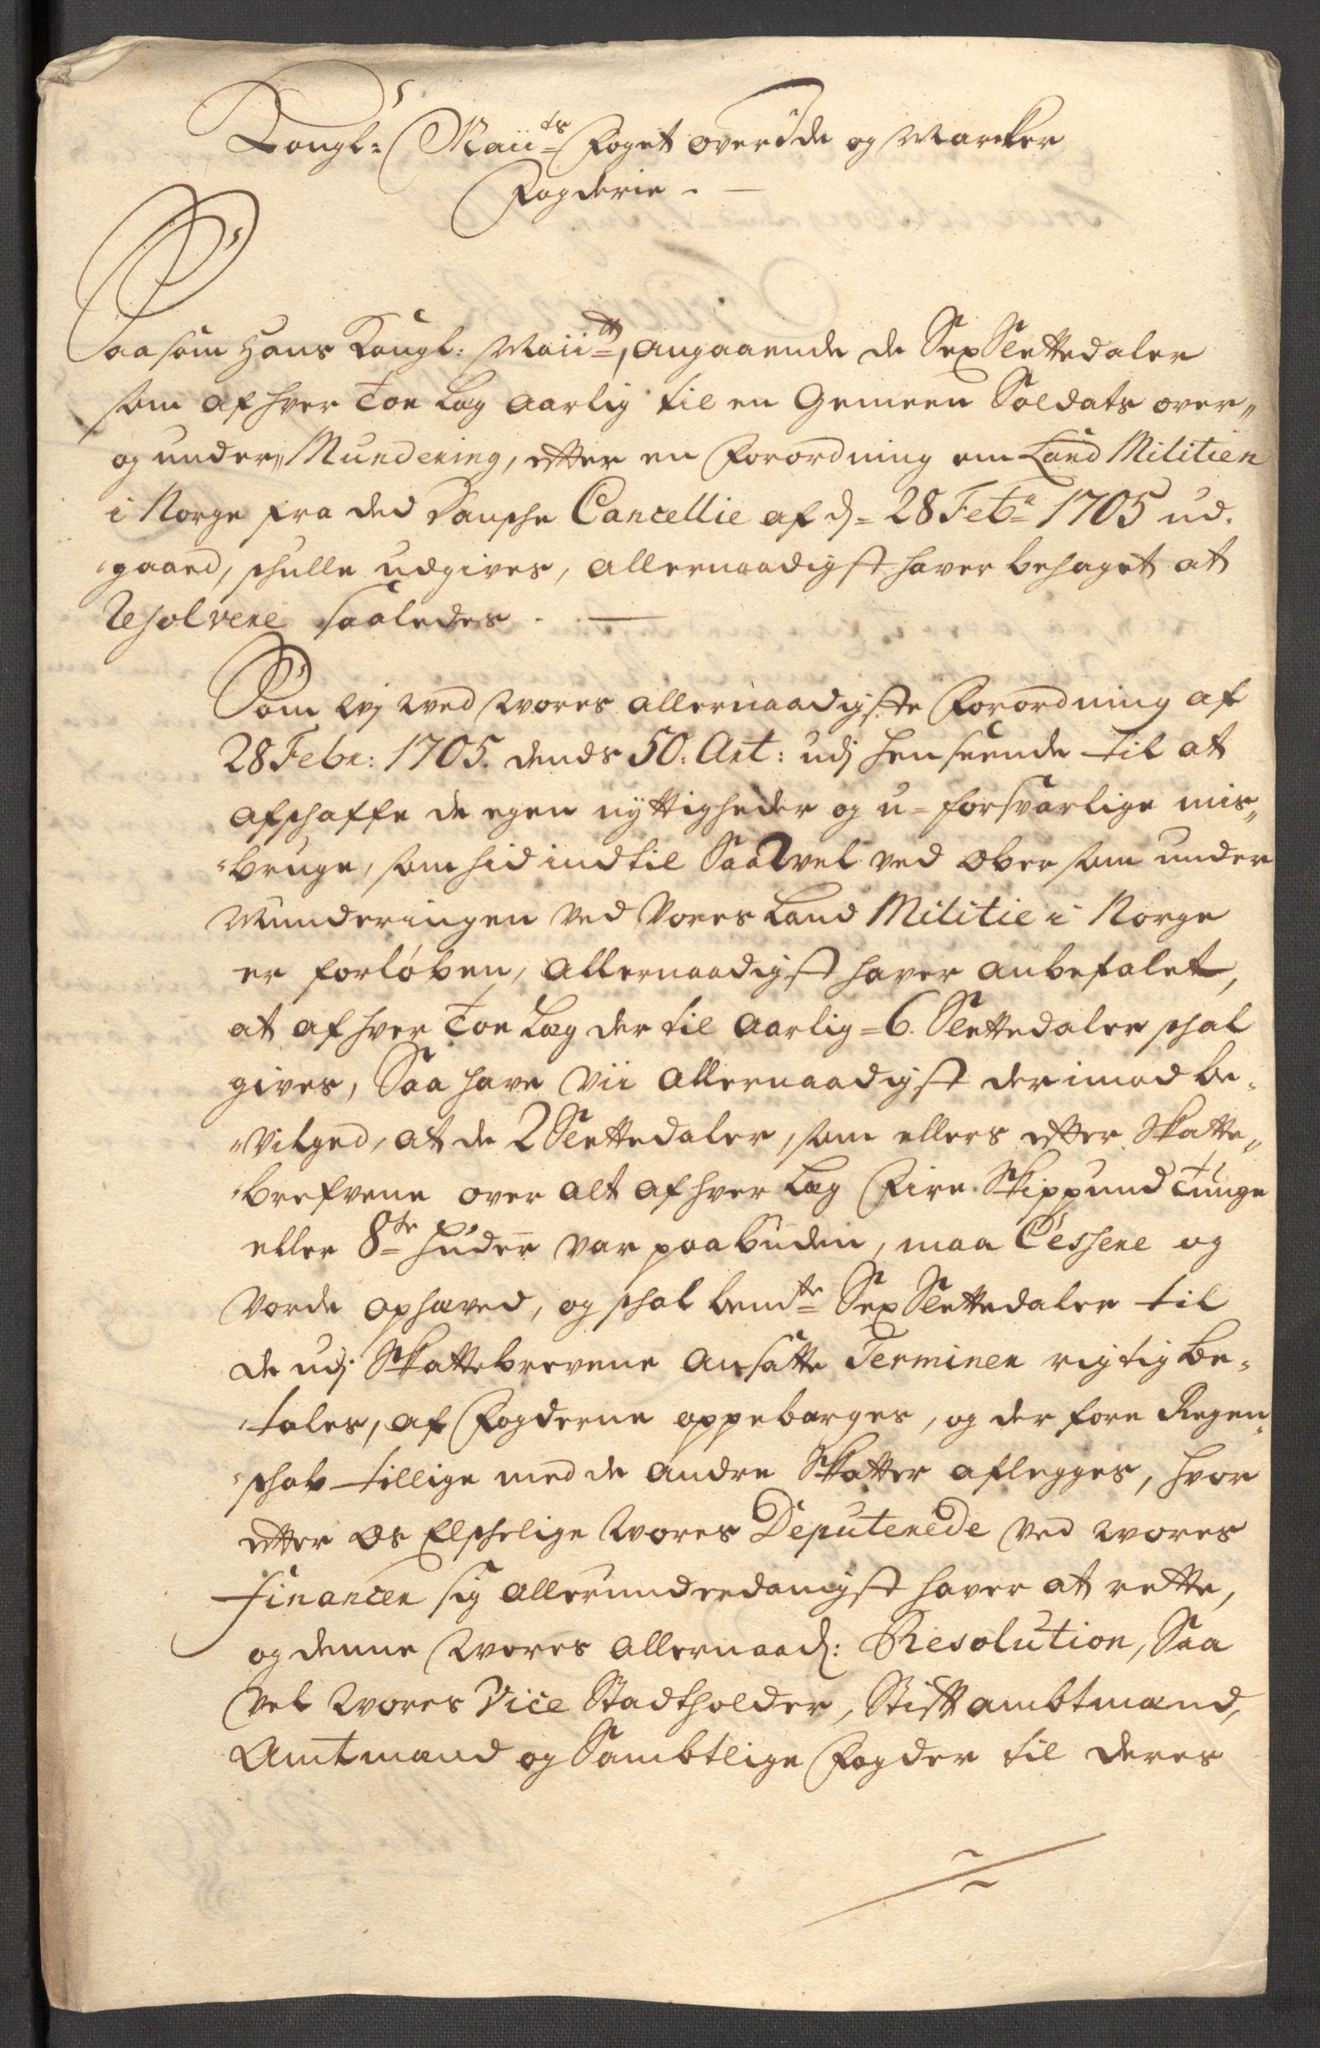 Kongl: Maii:ts Foget over Ide og Marcker
Fogderie. —
Saasom Hans Kongl: Maii:tt, angaaende de Sex Slettedaler
som af hver Toe Læg aarlig til en Gemeen Soldats over„
og under„Mundering, efter en Forordning om Land Militien
i Norge fra ded Danshe Cancellie af d= 28 Feb: 1705 ud.
„gaaed, schulle udgives, allernaadigst haver behaget at
Resolvere saaledes. —
Som Wj wed Wores allernaadigste Forordning af
28 Febr: 1705. dends 50. Art: udj henseende til at
afschaffe de egen nyttigheder og u=forsvarlige mis„
„bruge, som hid indtil Saavel ved Ober som under
Munderingen ved Vores Land Militie i Norge
er forløben, allernaadigst haver anbefalet,
at af hver Toe Læg der til aarlig=6. Slettedaler schal
gives, Saa have Vii allernaadigst derimod be„
„vilged, at de 2 Slettedaler, som ellers efter Skatte„
„brefvene over alt af hver Læg Fire Skippund Tunge
eller 8te Huder var paabuden, maa Cessere og
vorde ophæved, og schal bemte Sex Slettedaler til
de udj Skattebrevene Ansatte Terminer rigtig be„
„tales, af Fogderne oppebærges, og der fore Regen„
„schab tillige med de andre Skatter aflegges, hvor
efter Os Elschelige Wores Deputerede ved Wores
Financer sig allerunderdanigst haver at rette,
og denne Wores allernaad: Resolution, Saa
vel Wores Vice Stadtholder, Stiftambtmænd,
Amtmænd og Sambtlige Fogder til deres